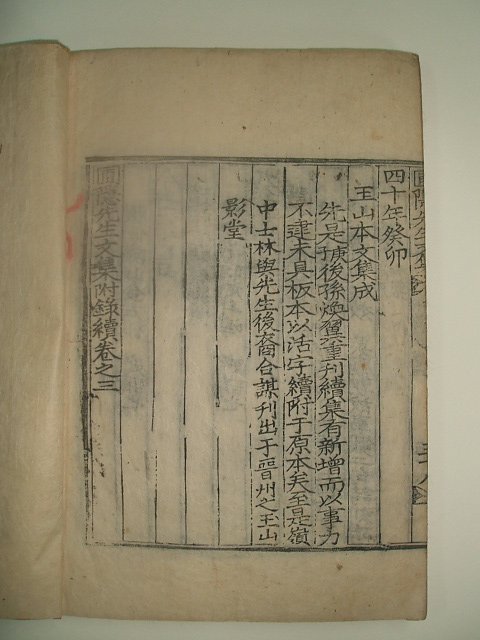 四十年癸卯
玉山本文集成
先是後孫煥翼重刊續集有新增而以事力
不逮未具板本以活字續附于原本矣至是嶺
中士林與先生後裔合謀刊出于晉州之玉山
影堂
圃隱先生文集附錄續卷之三